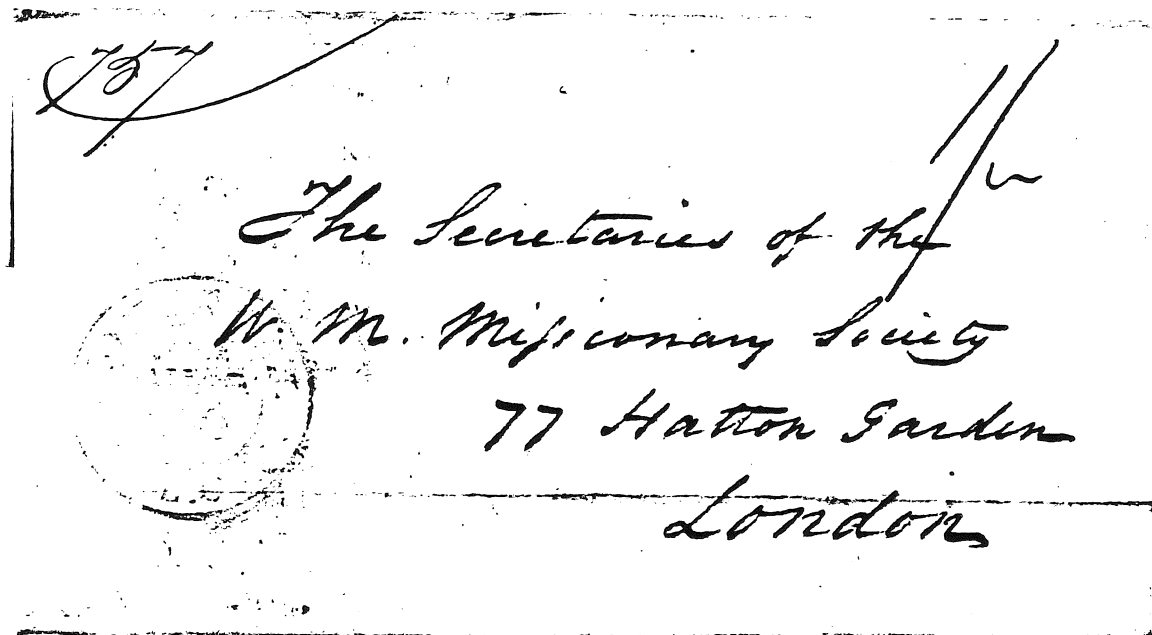 757
The Secretaries of the
W. M. Missionary Society
77 Hatton Garden
London